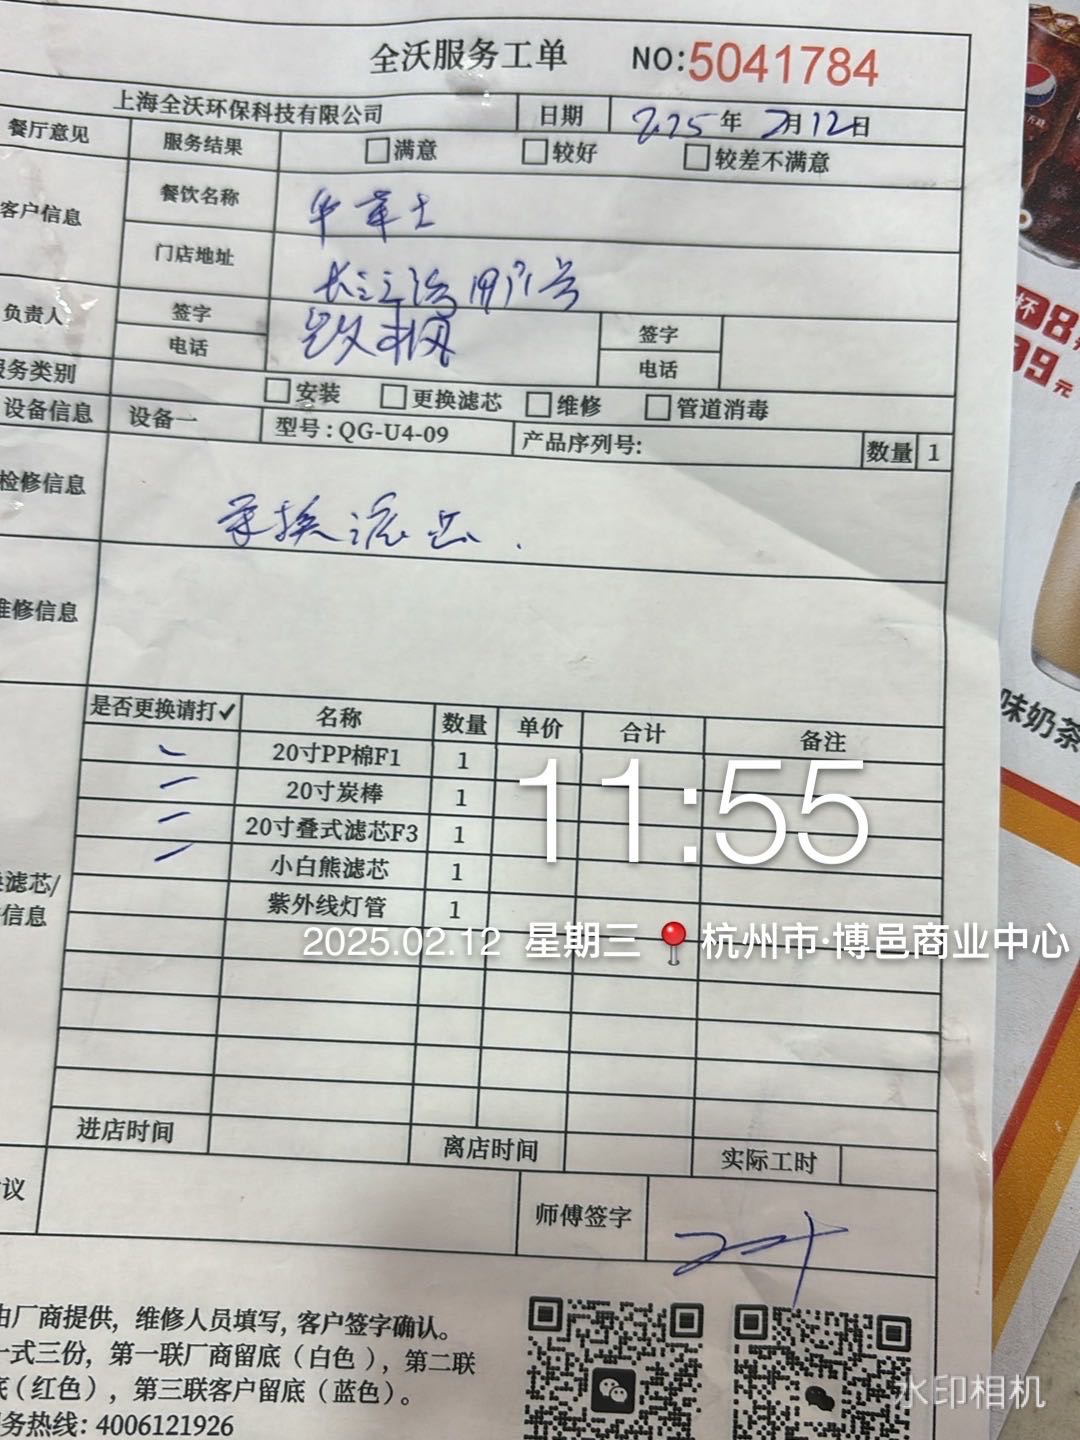 全沃服务工单 NO:5041784
上海全沃环保科技有限公司 日期 2025年2月12日
餐厅意见 服务结果 □满意 □较好 □较差不满意
客户信息 餐饮名称 华莱士
门店地址 号
负责人 签字 签字
电话 电话
务类别 □安装 □更换滤芯 □维修 □管道消毒
设备信息 设备一 型号:QG-U4-09 产品序列号: 数量 1
检修信息 更换滤芯.
维修信息
是否更换请打✓ 名称 数量 单价 合计 备注
20寸PP棉F1 1
20寸炭棒 1
20寸叠式滤芯F3 1
小白熊滤芯 1
紫外线灯管 1
滤芯/
信息
11:55
2025.02.12 星期三 杭州市·博邑商业中心
进店时间 离店时间 实际工时
议 师傅签字
由厂商提供,维修人员填写,客户签字确认。
一式三份,第一联厂商留底(白色),第二联
底(红色),第三联客户留底(蓝色)。
务热线:4006121926
水印相机
杯8
9元
味奶茶